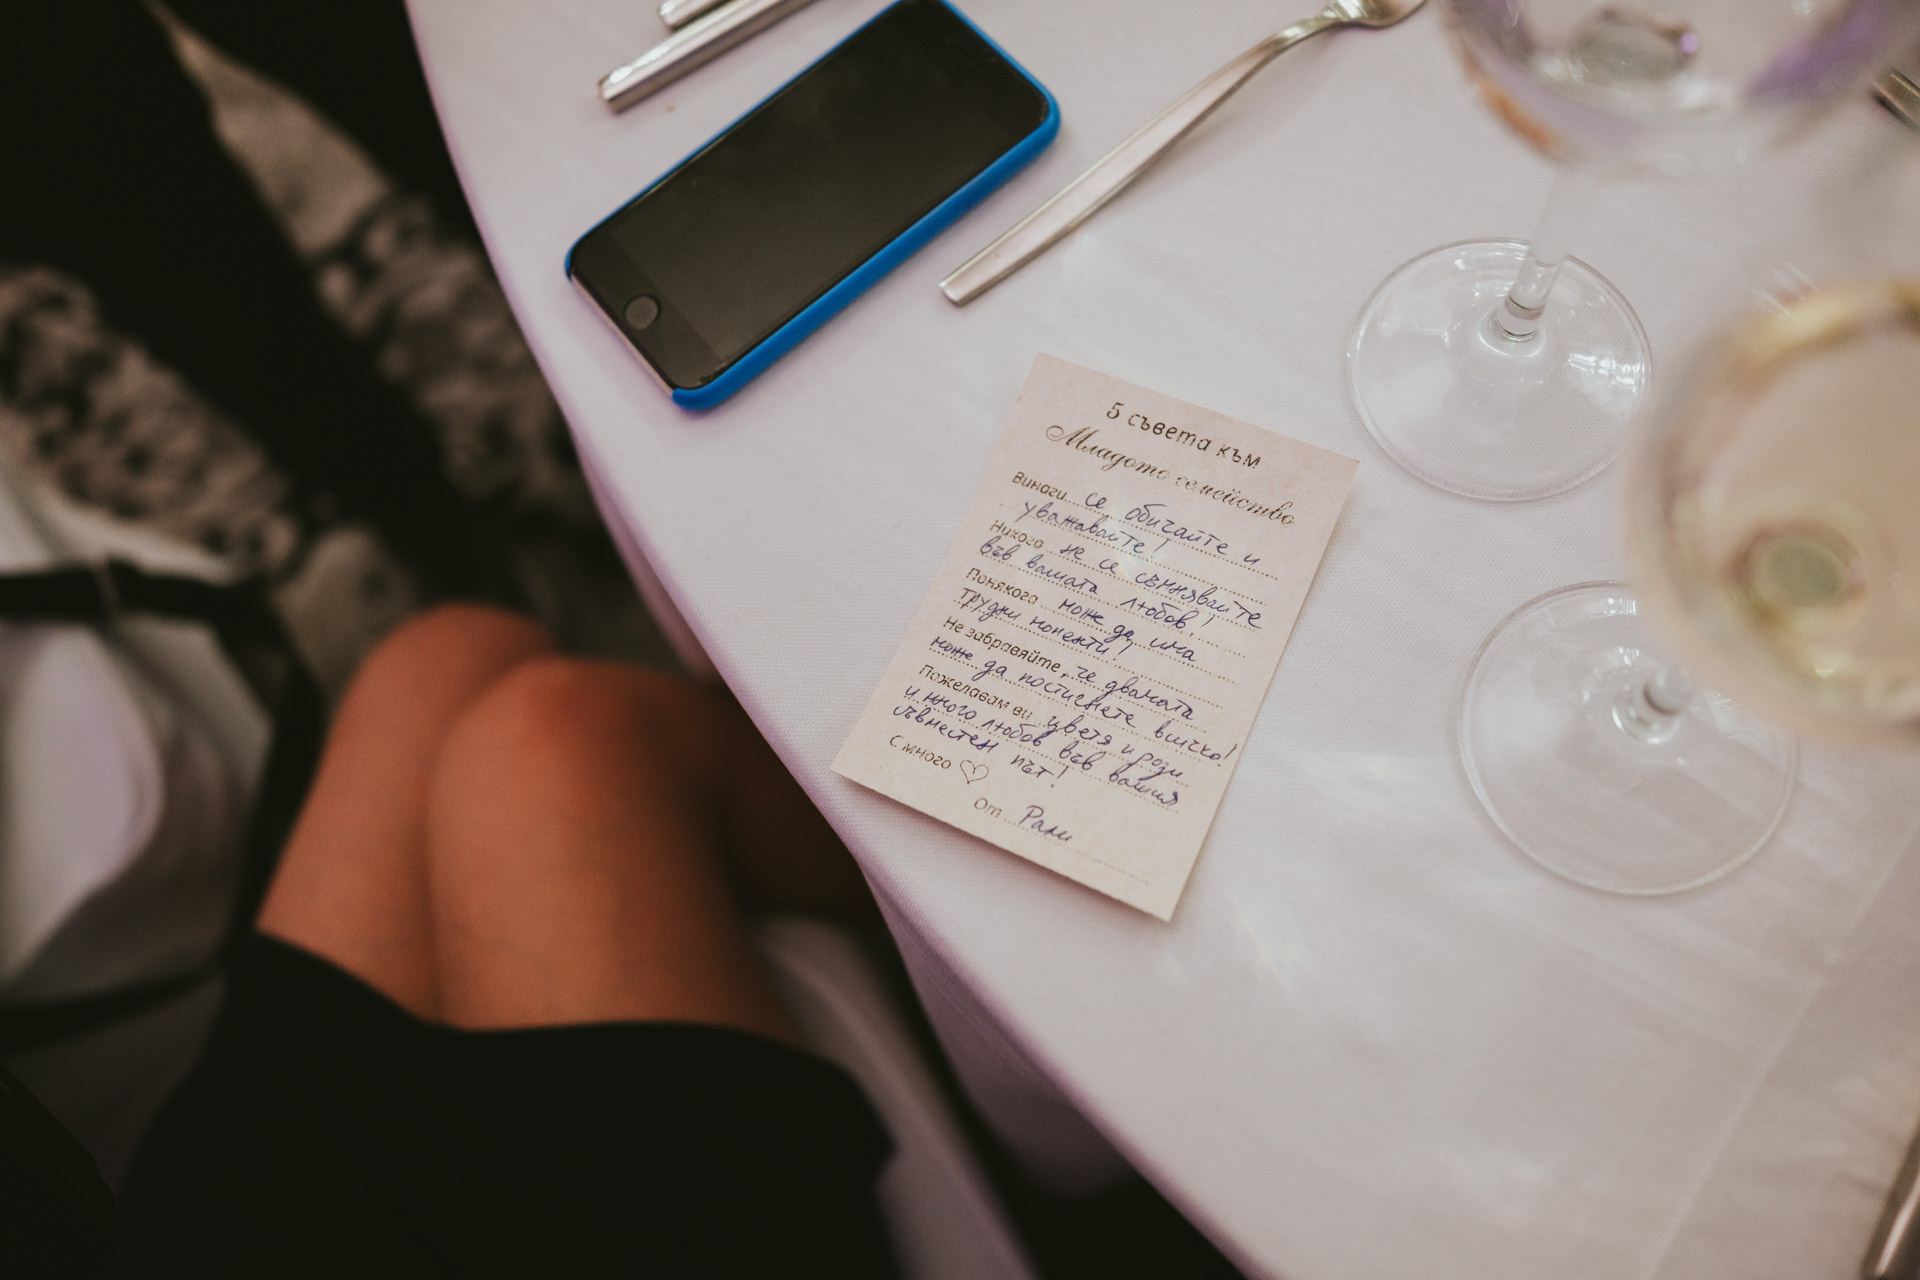 5 съвета към
Младото семейство
Винаги се обичайте и
уважавайте!
Никога не се съмнявайте
във вашата любов!
Понякога може да има
трудни моменти!
Не забравяйте, че двамата
може да постигнете всичко!
Пожелавам ви цветя и рози
и много любов във вашия
съвместен път!
С много ♡
От Рали